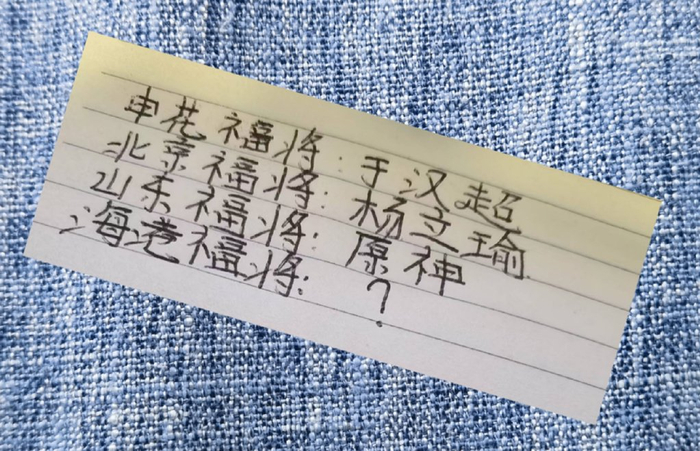 申花福将:于汉超
北京福将:杨立瑜
山东福将:原神
海港福将:?